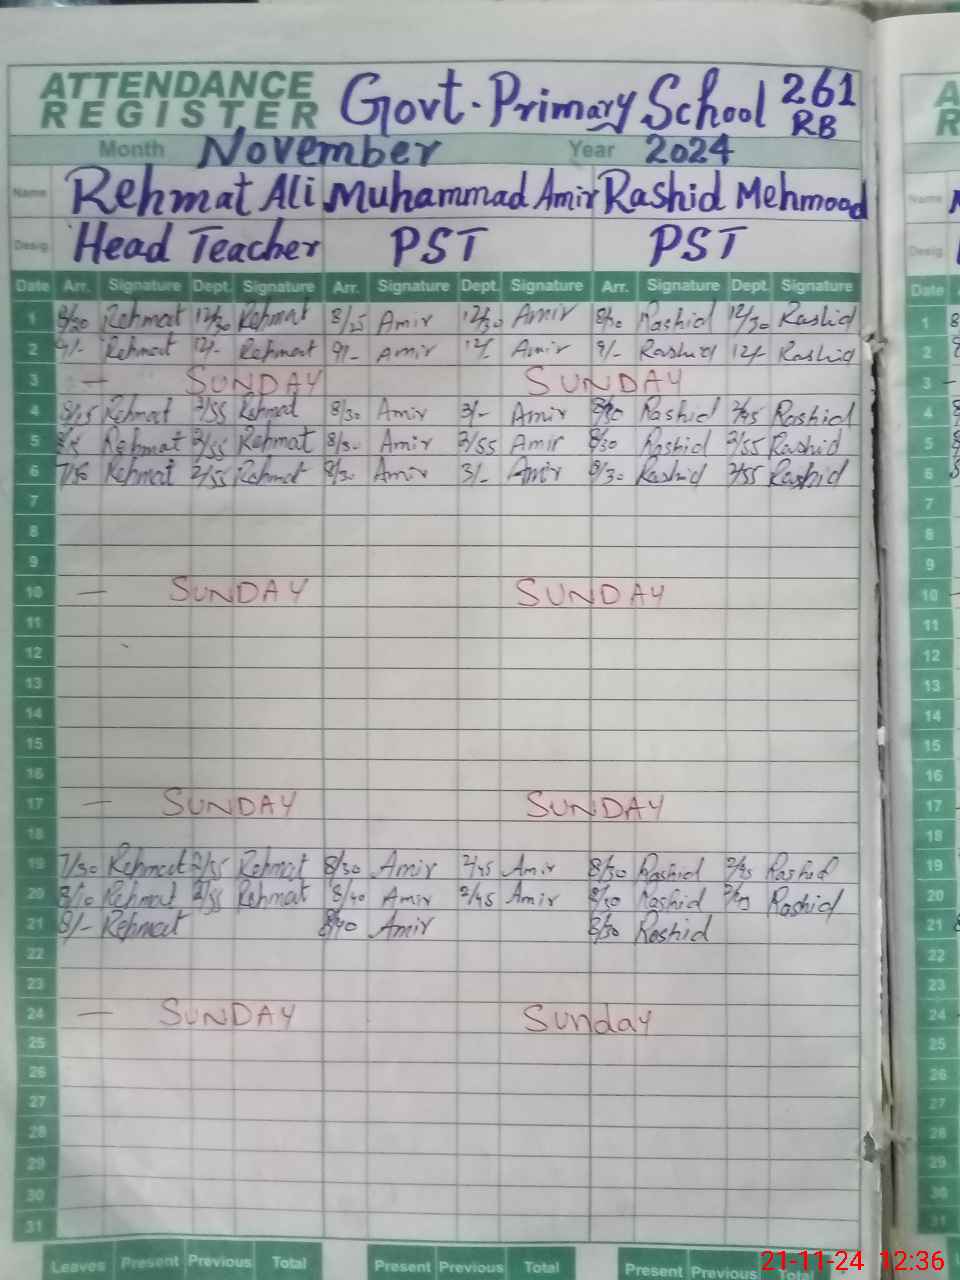 ATTENDANCE REGISTER Govt. Primary School 261 RB
Month November Year 2024
Name Rehmat Ali Muhammad Amir Rashid Mehmood Name
Desig. Head Teacher PST PST Desig.
Date Arr. Signature Dept. Signature Arr. Signature Dept. Signature Arr. Signature Dept. Signature Date
1 8/30 Rehmat 12/30 Rehmat 8/25 Amir 12/30 Amir 8/30 Rashid 12/30 Rashid 1
2 9/- Rehmat 12/- Rehmat 9/- Amir 12/- Amir 9/- Rashid 12/- Rashid 2
3 — SUNDAY SUNDAY 3
4 Rehmat 2/55 Rehmat 8/30 Amir 3/- Amir 8/30 Rashid Rashid 4
5 Rehmat 2/55 Rehmat 8/30 Amir 2/55 Amir 8/30 Rashid 2/55 Rashid 5
6 Rehmat 2/55 Rehmat 8/30 Amir 3/- Amir 8/30 Rashid 2/55 Rashid 6
7 7
8 8
9 9
10 — SUNDAY SUNDAY 10
11 11
12 12
13 13
14 14
15 15
16 16
17 — SUNDAY SUNDAY 17
18 18
19 7/30 Rehmat 2/55 Rehmat 8/30 Amir 2/45 Amir 8/30 Rashid Rashid 19
20 8/10 Rehmat 2/55 Rehmat 8/40 Amir 2/45 Amir 8/30 Rashid Rashid 20
21 8/- Rehmat 8/40 Amir 8/30 Rashid 21
22 22
23 23
24 — SUNDAY Sunday 24
25 25
26 26
27 27
28 28
29 29
30 30
31 31
Leaves Present Previous Total Present Previous Total Present Previous Total
21-11-24 12:36